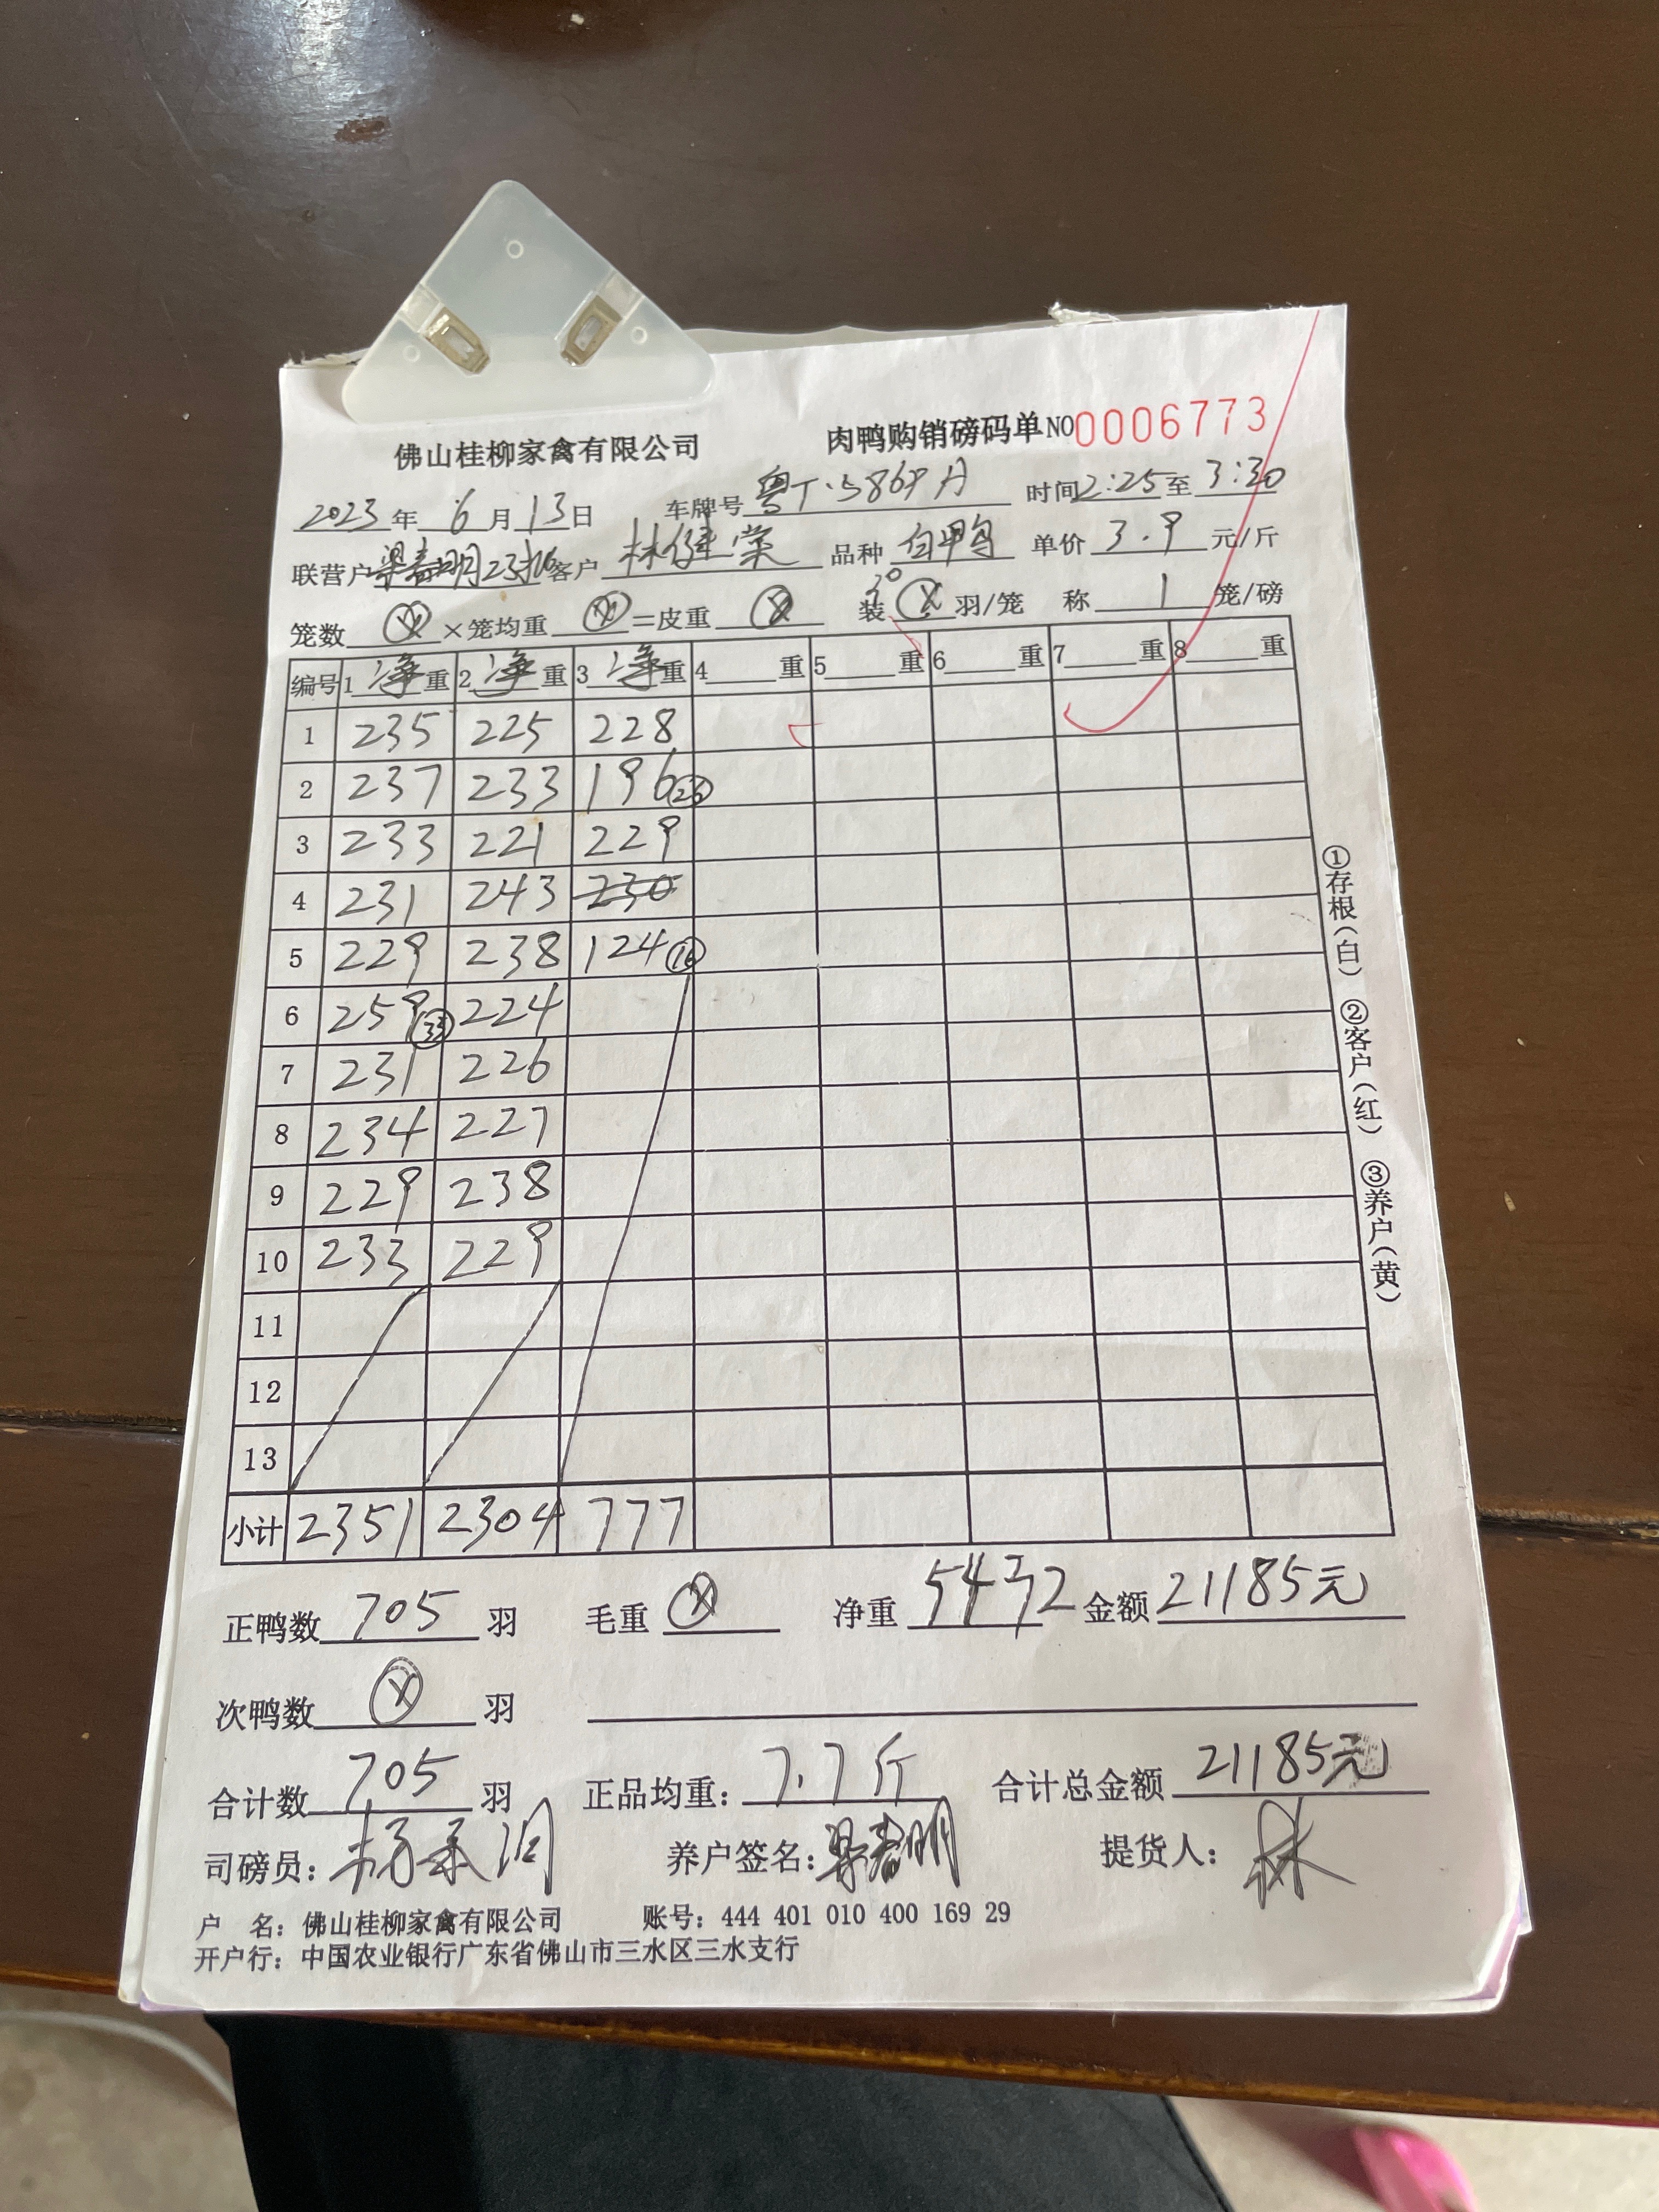 佛山桂柳家禽有限公司 肉鸭购销磅码单 NO 0006773
2023年 6月 13日 车牌号 粤T·5869A 时间 2:25 至 3:30
联营户 梁春明23批 客户 林健棠 品种 白鸭 单价 3.9 元/斤
笼数 ⓧ ×笼均重 ⓧ =皮重 ⓧ 装 30 ⓧ 羽/笼 称 1 笼/磅
编号 1 净 重 2 净 重 3 净 重 4 重 5 重 6 重 7 重 8 重
1 235 225 228
2 237 233 196 ㉖
3 233 221 229
4 231 243 230
5 229 238 124 ⑯
6 259 ㉝ 224
7 231 226
8 234 227
9 229 238
10 233 229
11
12
13
小计 2351 2304 777
正鸭数 705 羽 毛重 ⓧ 净重 5432 金额 21185元
次鸭数 ⓧ 羽
合计数 705 羽 正品均重: 7.7斤 合计总金额 21185元
司磅员: 养户签名: 梁春明 提货人: 林
户 名: 佛山桂柳家禽有限公司 账号: 444 401 010 400 169 29
开户行: 中国农业银行广东省佛山市三水区三水支行
①存根(白) ②客户(红) ③养户(黄)